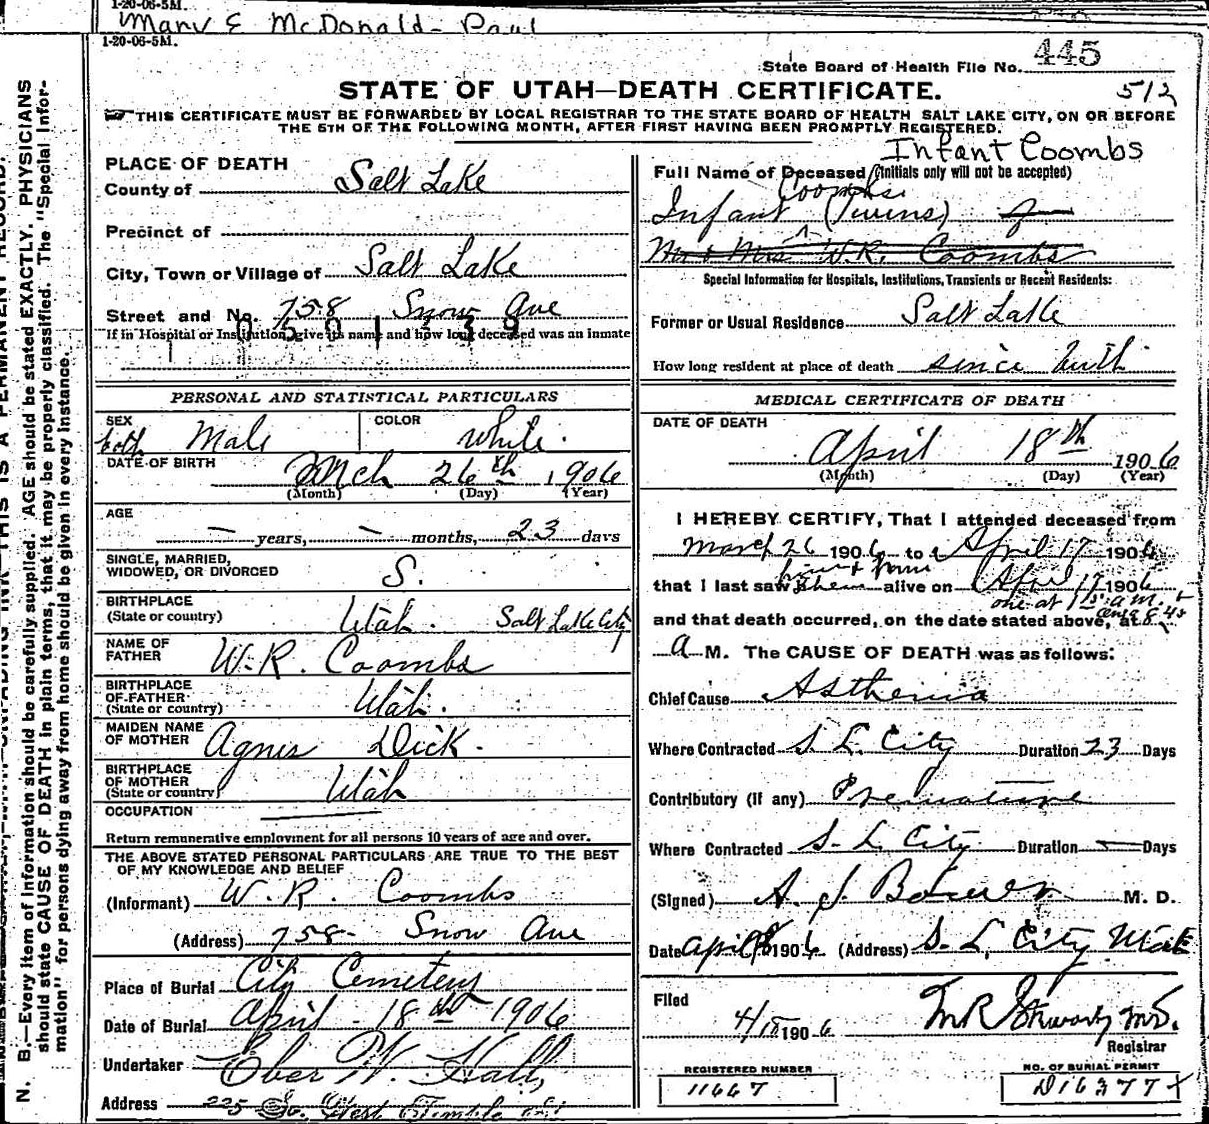 1-20-06-5M.
Mary E McDonald- Paul
1-20-06-5M.
State Board of Health File No. 445
STATE OF UTAH—DEATH CERTIFICATE.
512
THIS CERTIFICATE MUST BE FORWARDED BY LOCAL REGISTRAR TO THE STATE BOARD OF HEALTH SALT LAKE CITY, ON OR BEFORE
THE 5TH OF THE FOLLOWING MONTH, AFTER FIRST HAVING BEEN PROMPTLY REGISTERED.
PLACE OF DEATH
County of Salt Lake
Precinct of
City, Town or Village of Salt Lake
Street and No. 758 Snow Ave
0501239
If in Hospital or Institution, give its name and how long deceased was an inmate
PERSONAL AND STATISTICAL PARTICULARS
SEX both Male COLOR White.
DATE OF BIRTH Mch 26th 1906
(Month) (Day) (Year)
AGE
— years, — months, 23 days
SINGLE, MARRIED,
WIDOWED, OR DIVORCED S.
BIRTHPLACE
(State or country) Utah. Salt Lake City
NAME OF
FATHER W.R. Coombs
BIRTHPLACE
OF FATHER
(State or country) Utah.
MAIDEN NAME
OF MOTHER Agnes Dick.
BIRTHPLACE
OF MOTHER
(State or country) Utah
OCCUPATION
Return remunerative employment for all persons 10 years of age and over.
THE ABOVE STATED PERSONAL PARTICULARS ARE TRUE TO THE BEST
OF MY KNOWLEDGE AND BELIEF
(Informant) W. R. Coombs
(Address) 758- Snow Ave
Place of Burial City Cemetery
Date of Burial April - 18th 1906
Undertaker Eber W. Hall,
Address 225 So. West Temple
Infant Coombs
Full Name of Deceased (Initials only will not be accepted)
Coombs
Infant (Twins) of
Mr & Mrs W.R. Coombs
Special Information for Hospitals, Institutions, Transients or Recent Residents:
Former or Usual Residence Salt Lake
How long resident at place of death since birth
MEDICAL CERTIFICATE OF DEATH
DATE OF DEATH
April 18th 1906
(Month) (Day) (Year)
I HEREBY CERTIFY, That I attended deceased from
March 26 1906 to April 17 1906
that I last saw them alive on April 17 1906
one at 1 a.m.
and that death occurred, on the date stated above, at 8.45
a M. The CAUSE OF DEATH was as follows:
Chief Cause Asthenia
Where Contracted S. L. City Duration 23 Days
Contributory (if any) Premature
Where Contracted S. L. City Duration — Days
(Signed) A. J. M. D.
Date April 1906 (Address) S. L. City Utah
Filed
4/18 1906 M.D.
Registrar
REGISTERED NUMBER
11667
NO. OF BURIAL PERMIT
D16377
N. B.—Every item of information should be carefully supplied. AGE should be stated EXACTLY. PHYSICIANS
should state CAUSE OF DEATH in plain terms, that it may be properly classified. The "Special Infor-
mation" for persons dying away from home should be given in every instance.